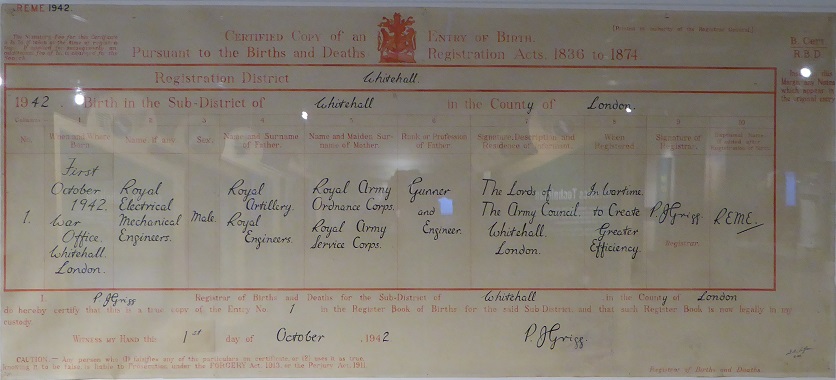 REME 1942.
CERTIFIED COPY OF AN ENTRY OF BIRTH.
Pursuant to the Births and Deaths Registration Acts, 1836 to 1874
B. Cert.
R.B.D.
Registration District Whitehall.
1942. Birth in the Sub-District of Whitehall in the County of London.
1 2 3 4 5 6 7 8 9 10
No. When and Where Born. Name, if any. Sex. Name and Surname of Father. Name and Maiden Surname of Mother. Rank or Profession of Father. Signature, Description and Residence of Informant. When Registered. Signature of Registrar.
1.
First
October
1942.
War
Office.
Whitehall.
London.
Royal
Electrical
Mechanical
Engineers.
Male.
Royal
Artillery.
Royal
Engineers.
Royal Army
Ordnance Corps.
Royal Army
Service Corps.
Gunner
and
Engineer.
The Lords of
The Army Council.
Whitehall.
London.
In wartime.
to Create
Greater
Efficiency.
P.J Grigg
Registrar.
REME.
I, P J Grigg Registrar of Births and Deaths for the Sub-District of Whitehall in the County of London
do hereby certify that this is a true copy of the Entry No. 1 in the Register Book of Births for the said Sub-District, and that such Register Book is now legally in my
custody.
WITNESS MY HAND this 1st day of October, 1942 P.J Grigg.
CAUTION.— Any person who (1) falsifies any of the particulars on certificate, or (2) uses it as true,
knowing it to be false, is liable to Prosecution under the FORGERY Act, 1913, or the Perjury Act, 1911.
Registrar of Births and Deaths.